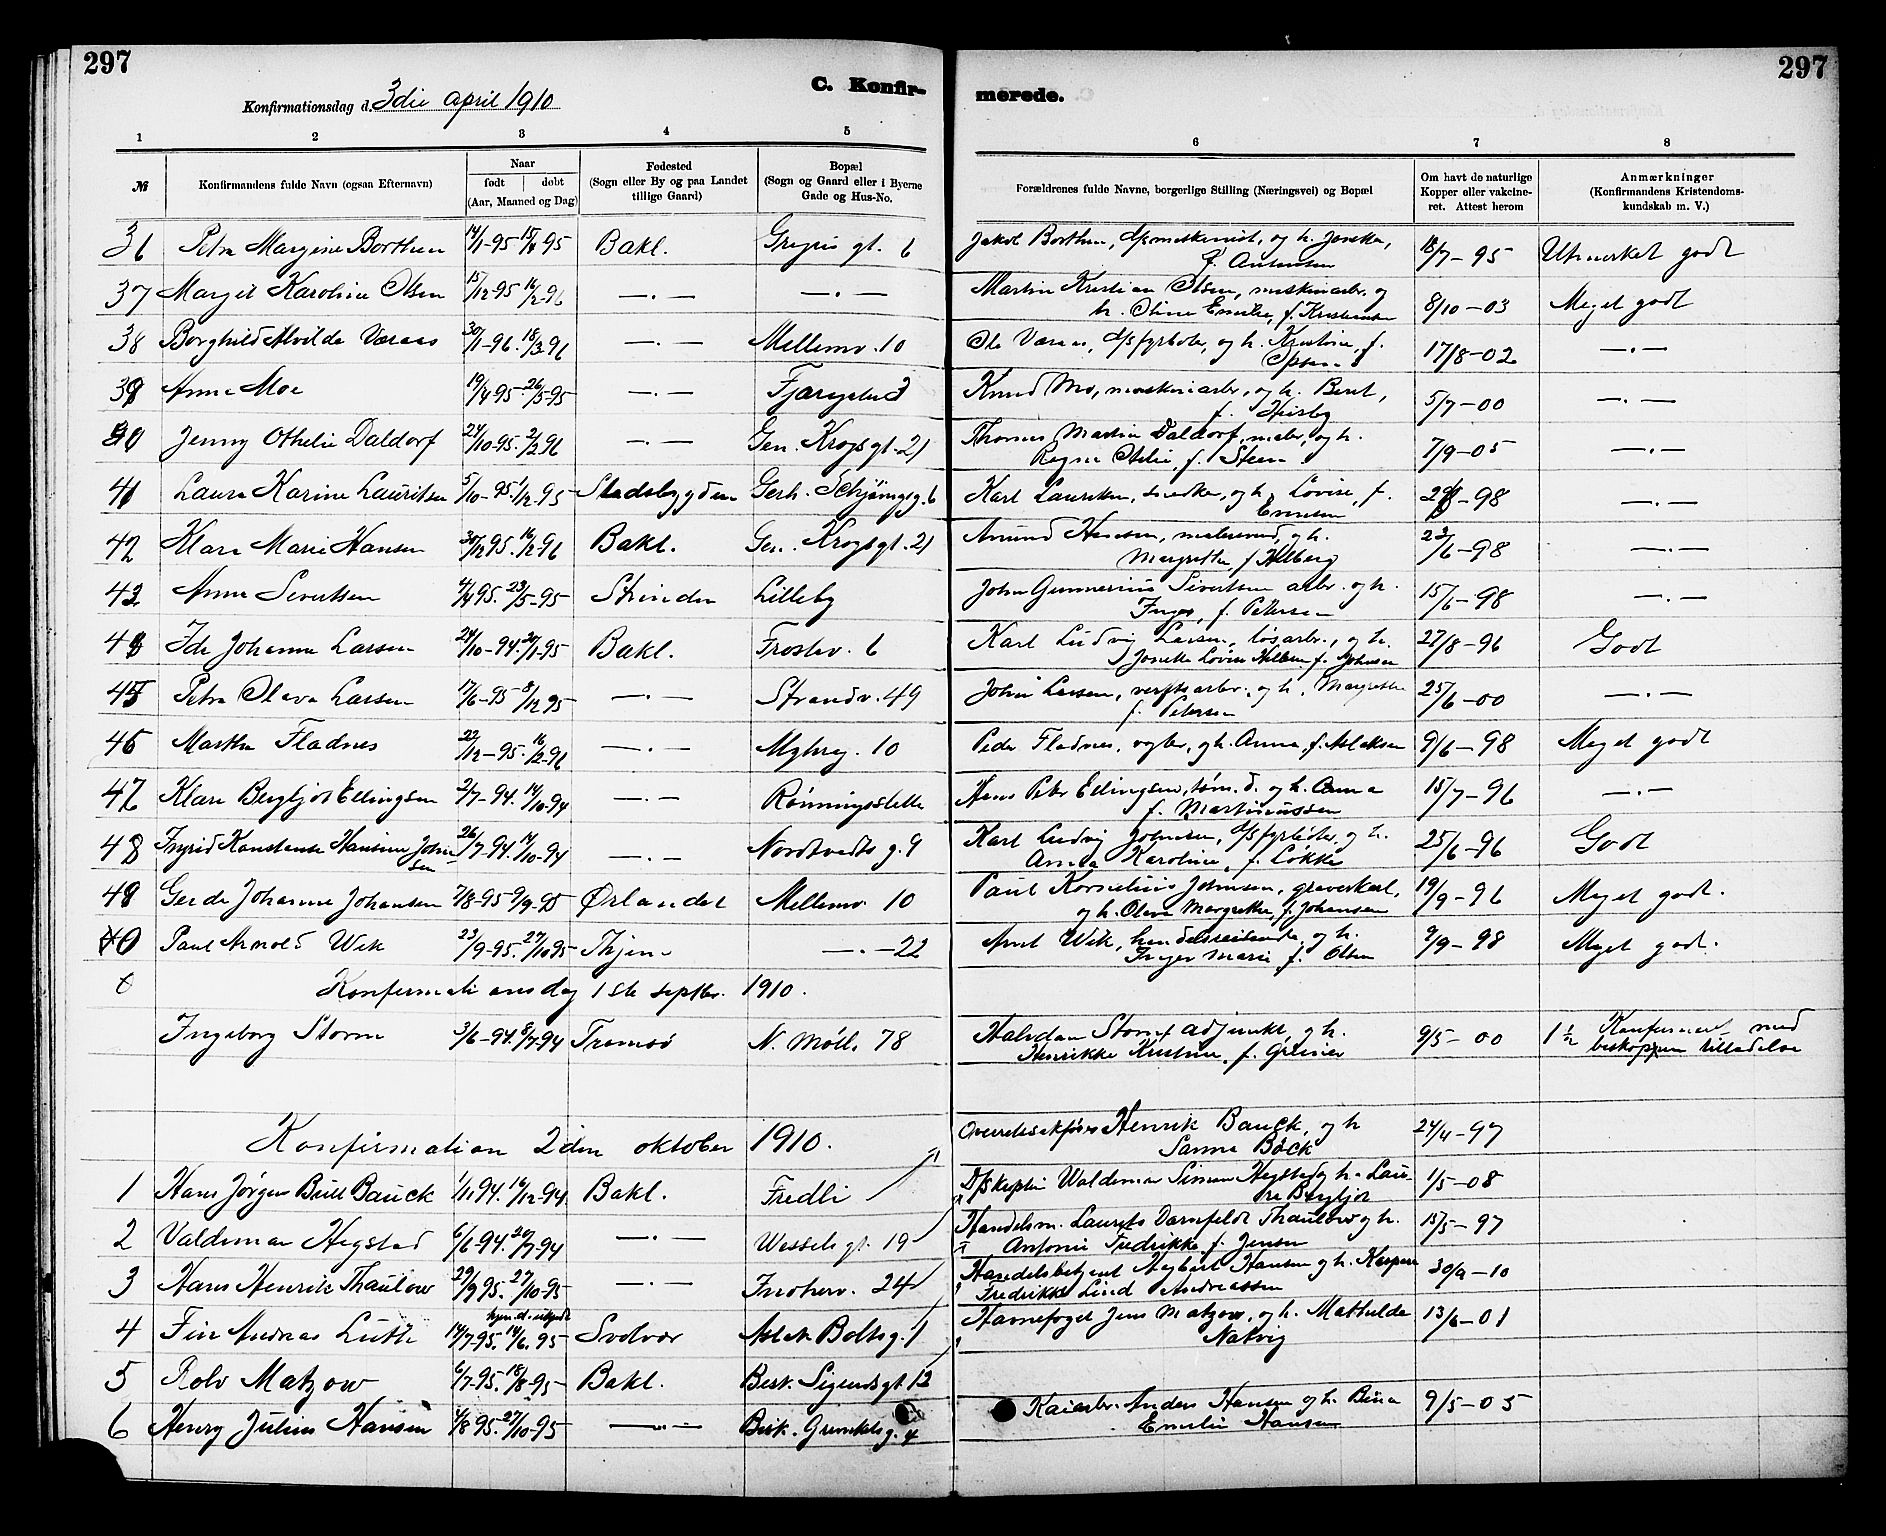 297
297
C. Konfir-
merede.
Konfirmationsdag d. 3die april 1910
1 2 3 4 5 6 7 8
№ Konfirmandens fulde Navn (ogsaa Efternavn) Naar født | døbt (Aar, Maaned og Dag) Fødested (Sogn eller By og paa Landet tillige Gaard) Bopæl (Sogn og Gaard eller i Byerne Gade og Hus-No. Forældrenes fulde Navne, borgerlige Stilling (Næringsvei) og Bopæl Om havt de naturlige Kopper eller vakcineret. Attest herom Anmærkninger (Konfirmandens Kristendomskundskab m. V.)
36 Petra Margine Borthen 14/1-95 Bakl. gt. 6 Jakob Borthen, og h. 18/7-95 Utmerket godt
37 Margit Karoline Olsen 15/12-95 16/2-96 —.— —.— Martin Kristian Olsen, maskinarb. og h. Oline Emilie, f. Kristensen 8/10-03 Meget godt
38 Borghild Alvilde Væraas 30/1-96. 18/3-96 —.— Mellemv. 10 Ole Væraas, og h. Kristine, f. 17/8-02 —.—
39 Anna Moe 19/4-95. 26/5-95 —.— Knud Mo, maskinarb., og h. Beret, f. 5/7-00 —.—
40 Jenny Othelie Daldorf 24/10-95. 2/2-96 —.— Gen. Krogsgt. 21 Thomas Martin Daldorf, og h. Ragna Otelie, f. Steen 7/9-05 —.—
41 Laura Karine Lauritsen 5/10-95. 1/12-95 Stadsbygden Gerh. Schjøningsg. 6 Karl Lauritsen, snedker, og h. Lovise, f. -98 —.—
42 Klara Marie Hansen 30/12-95. 16/2-96 Bakl. Gen. Krogsgt. 21 Hansen, og h. Margrethe, f. 23/6-98 —.—
43 Anna Sivertsen 4/4-95. 23/5-95 Strinden Lilleby John Gunnerius Sivertsen arb. og h. f. Petersen 15/6-98 —.—
44 Ida Johanne Larsen 24/10-94. 20/1-95 Bakl. Frostev. 6 Karl Ludvig Larsen, løsarb., og h. f. Johnsen 27/8-96 Godt
45 Petra Olava Larsen 17/6-95 8/12-95 —.— Strandv. 49 Johan Larsen, verftsarb., og h. Margrethe f. Petersen 25/6-00 —.—
46 Martha Fladnes 22/12-95. 16/2-96 —.— 10 Peder Fladnes, og h. Anna, f. Aslaksen 9/6-98 Meget godt
47 Klara Bergljot Ellingsen 2/7-94. 14/10-94 —.— Rønningsletta Hans Peter Ellingsen, tøm. og h. Anna f. Martinussen 15/7-96 —.—
48 Ingrid Konstanse Hansine Johnsen 26/7-94. 14/10-94 —.— Nordtvedts g. 9 Karl Ludvig Johnsen, D/S fyrbøter, og h. Anna Karoline, f. Løkke 25/6-96 Godt
49 Gerda Johanne Johansen 7/8-95 9/9-95 Ørlandet Mellemv. 10 Paul Kornelius Johnsen, graverkarl, og h. Olava Margrethe, f. Johansen 19/9-96 Meget godt.
Paul Arnold Wik 23/9-95. 27/10-95 —.—22 Arnt Wik, handelsreisende, og h. Inger Marie f. Olsen 9/9-98 Meget godt.
Konfirmationsdag 1ste septbr. 1910.
Ingeborg Storm 3/6-94. 8/7-94 Tromsø N. Møll. 78 Halvdan Storm adjunkt, og h. Henrikke Kristine, f. Greiner 9/5-00 1 1/2 Konfirmert med biskoppen tilladelse
Konfirmation 2den oktober 1910.
1 Hans Jørgen Bull Bauck 1/11.94. 16/12-94. Bakl. Fredli Overretssakfører Henrik Bauck, og h Sanna Böck 24/4-97
2 Valdemar Hegstad 6/6-94. 20/7-94 —.— Wessels gt. 19 D/Skaptein Waldemar Simon Hegstad og h. Laura Bergljot 1/5-08
3 Hans Henrik Thaulow 29/9-95. 27/10-95 —.— Inherv. 24 Handelsm. Laurits Darnfeldt Thaulow og h. Antonie Fredrikke f. Jensen 15/5-97
4 Fin Andreas Lütke 14/7-95. 14/6.95 hjemd. Svolvær Aslak Boltsg. 1 Handelsbetjent Hansen og h. Kaspara Fredrikke Lind Andreassen 30/9-10
5 Rolv Matzow 6/7-95. 18/8-95 Bakl. Bisk. Sigurdsgt. 12 Havnefoged Jens Matzow, og h. Mathilde Natvig 13/6-01
6 Henry Julius Hansen 4/8-95. 27/10-95 —.— Bisk. Grimkelsg. 4 Kaiarbr. Anders Hansen og h. Bina Emilie Hansen 9/5-05